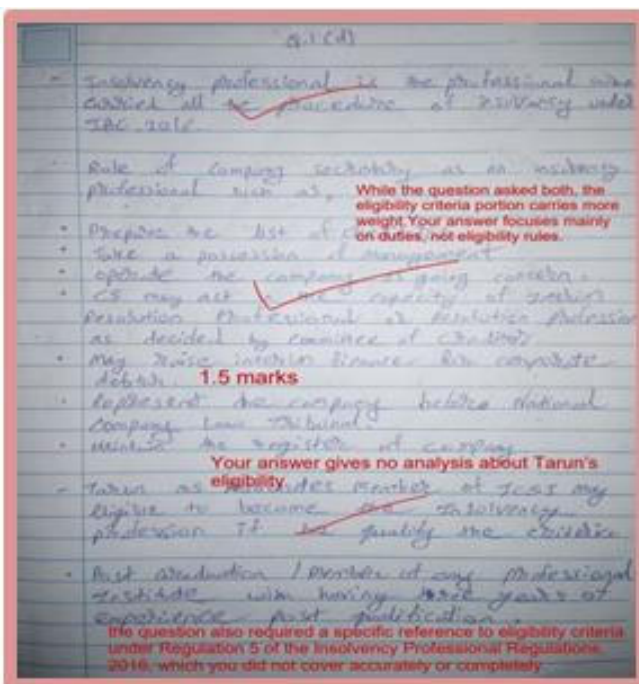 Q.1 (d)
- Insolvency professional is the professional who
carried all the procedure of insolvency under
IBC role.
Role of Company secretary as an insolvency
professional such as,
While the question asked both, the
eligibility criteria portion carries more
weight.Your answer focuses mainly
on duties, not eligibility rules.
• Prepare the list of
• Take a possession of management
• operate the company as going concern.
• CS may act in the capacity of
Resolution Professional or Resolution Profession
as decided by committee of Creditors
• May raise interim finance for corporate
debtor.
1.5 marks
• Represent the company before National
Company Law Tribunal.
• the register of company
Your answer gives no analysis about Tarun's
eligibility
- Tarun as member of ICSI may
eligible to become Insolvency
profession if he qualify the criteria
• Post graduation / member of any professional
institute with having three years of
experience post
the question also required a specific reference to eligibility criteria
under Regulation 5 of the Insolvency Professional Regulations,
2016, which you did not cover accurately or completely